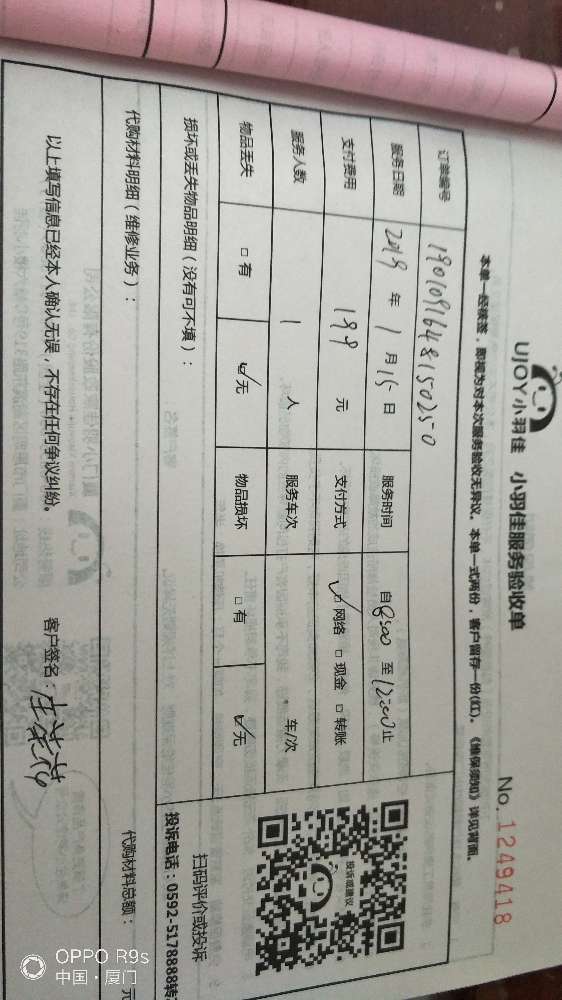 UJOY小羽佳 小羽佳服务验收单
No. 1249418
本单一经接签,即视为对本次服务验收无异议。本单一式两份,客户留存一份(红)。《维保须知》详见背面。
订单编号 1901091648150250
服务日期 2019 年 1 月 15 日 服务时间 自 8:00 至 12:00 止
支付费用 199 元 支付方式 ☑ 网络 □ 现金 □ 转账
服务人数 1 人 服务车次 车/次
物品丢失 □ 有 ☑ 无 物品损坏 □ 有 ☑ 无
损坏或丢失物品明细(没有可不填):
投诉或建议
扫码评价或投诉
投诉电话:0592-5178888转
代购材料明细(维修业务):
代购材料总额: 元
以上填写信息已经本人确认无误,不存在任何争议纠纷。 客户签名:
OPPO R9s
中国·厦门